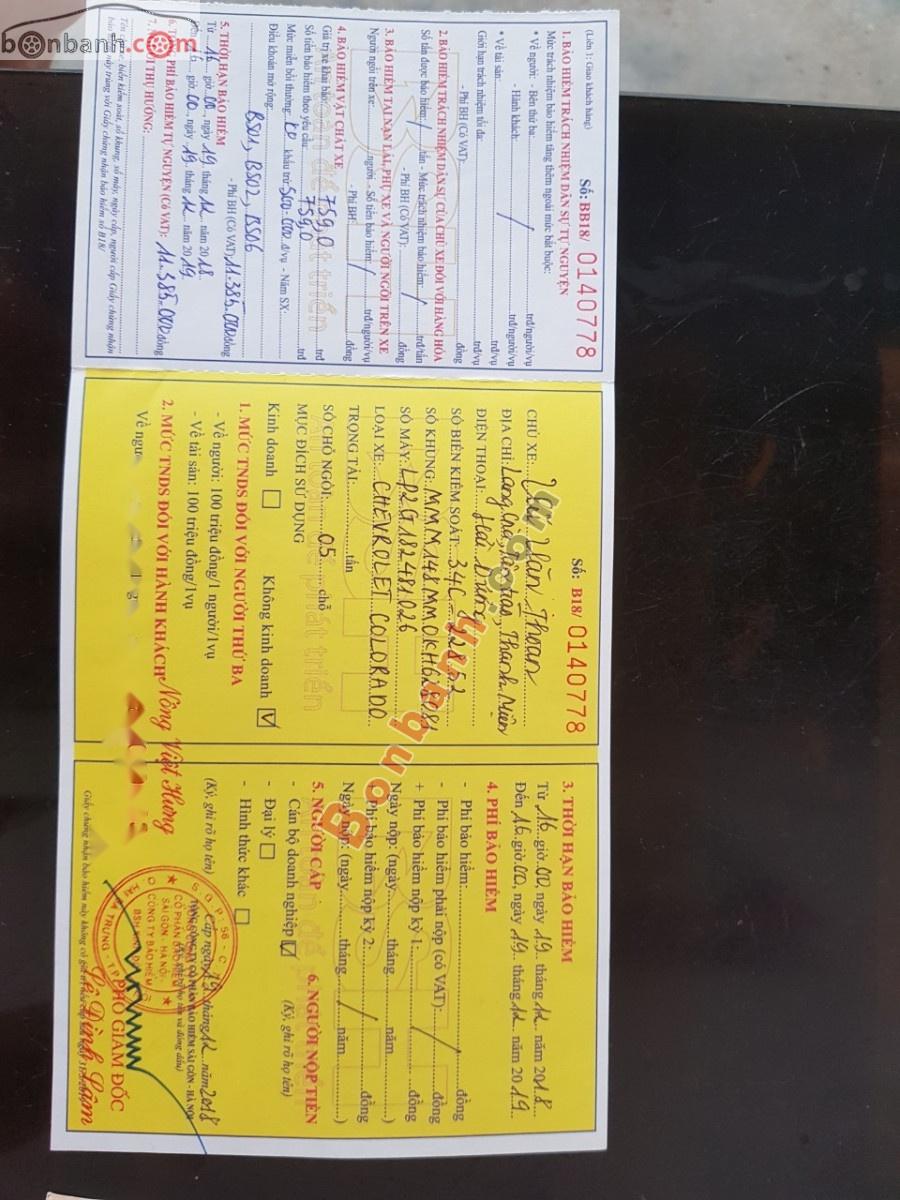 bonbanh.com
(Liên 1: Giao khách hàng)
Số: BB18/ 0140778
1. BẢO HIỂM TRÁCH NHIỆM DÂN SỰ TỰ NGUYỆN
Mức trách nhiệm bảo hiểm tăng thêm ngoài mức bắt buộc:
* Về người: - Bên thứ ba: trđ/người/vụ
- Hành khách: / trđ/người/vụ
* Về tài sản: trđ/vụ
Giới hạn trách nhiệm tối đa: trđ/vụ
- Phí BH (Có VAT): đồng
2. BẢO HIỂM TRÁCH NHIỆM DÂN SỰ CỦA CHỦ XE ĐỐI VỚI HÀNG HÓA
Số tấn được bảo hiểm: / tấn - Mức trách nhiệm bảo hiểm: / trđ/tấn
- Phí BH (Có VAT): / đồng
3. BẢO HIỂM TAI NẠN LÁI, PHỤ XE VÀ NGƯỜI NGỒI TRÊN XE
Người ngồi trên xe: người - Số tiền bảo hiểm: / trđ/người/vụ
- Phí BH: / đồng
4. BẢO HIỂM VẬT CHẤT XE
Giá trị xe khai báo: 759,0 trđ
Số tiền bảo hiểm theo yêu cầu: 759,0 trđ
Mức miễn bồi thường: khấu trừ 500.000 đ/vụ - Năm SX:
Điều khoản mở rộng:
BS01, BS02, BS06
- Phí BH (Có VAT) 11.385.000 đồng
5. THỜI HẠN BẢO HIỂM
Từ 16 giờ 00, ngày 19 tháng 12 năm 2018
giờ 00, ngày 19 tháng 12 năm 2019
PHÍ BẢO HIỂM TỰ NGUYỆN (Có VAT): 11.385.000 đồng
7. THỤ HƯỞNG:
biển kiểm soát, số khung, số máy, ngày cấp, người cấp Giấy chứng nhận
bảo hiểm này trùng với Giấy chứng nhận bảo hiểm số B18/
Số: B18/ 0140778
CHỦ XE: Văn Thoan
ĐỊA CHỈ: Thanh Miện
ĐIỆN THOẠI: Hải Dương
SỐ BIỂN KIỂM SOÁT: 34C
SỐ KHUNG: MMM148MM0KH
SỐ MÁY: LP2G182481026
LOẠI XE: CHEVROLET COLORADO
TRỌNG TẢI: tấn
SỐ CHỖ NGỒI: 05 chỗ
MỤC ĐÍCH SỬ DỤNG
Kinh doanh ☐ Không kinh doanh ☑
1. MỨC TNDS ĐỐI VỚI NGƯỜI THỨ BA
- Về người: 100 triệu đồng/1 người/1vụ
- Về tài sản: 100 triệu đồng/1vụ
2. MỨC TNDS ĐỐI VỚI HÀNH KHÁCH
Về ngư
3. THỜI HẠN BẢO HIỂM
Từ 16 giờ 00, ngày 19 tháng 12 năm 2018
Đến 16 giờ 00, ngày 19 tháng 12 năm 2019
4. PHÍ BẢO HIỂM
- Phí bảo hiểm: đồng
- Phí bảo hiểm phải nộp (có VAT): / đồng
+ Phí bảo hiểm nộp kỳ 1: đồng
Ngày nộp: (ngày tháng năm )
+ Phí bảo hiểm nộp kỳ 2: / đồng
Ngày nộp: (ngày tháng năm )
5. NGƯỜI CẤP 6. NGƯỜI NỘP TIỀN
- Cán bộ doanh nghiệp ☑ (Ký, ghi rõ họ tên)
- Đại lý ☐
- Hình thức khác ☐
(Ký, ghi rõ họ tên) Cấp ngày 19 tháng 12 năm 2018
TỔNG CÔNG TY CỔ PHẦN BẢO HIỂM SÀI GÒN - HÀ NỘI
Nông Việt Hưng
PHÓ GIÁM ĐỐC
Lê Đình Lâm
Bonbanh